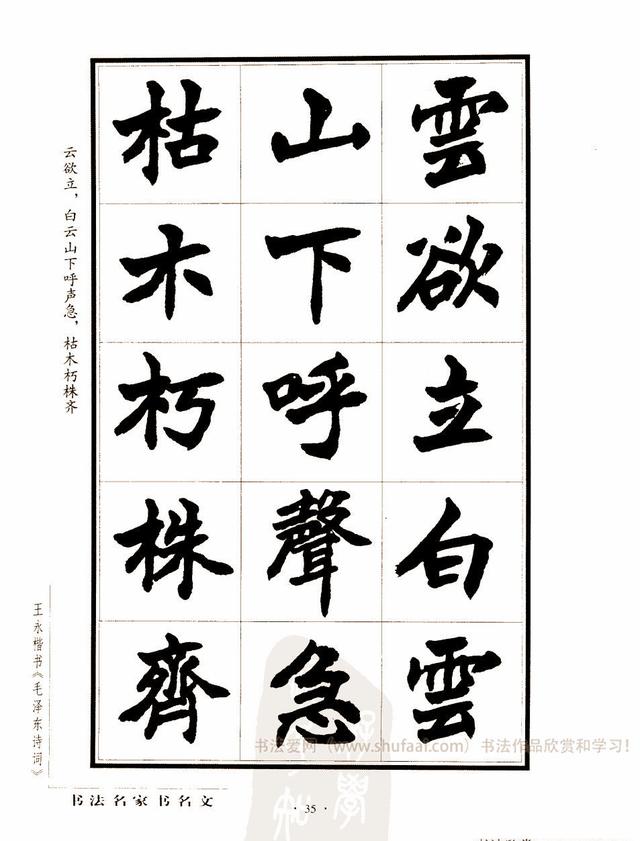 雲欲立白雲
山下呼聲急
枯木朽株齊
云欲立，白云山下呼声急，枯木朽株齐
王永楷书《毛泽东诗词》
书法名家书名文
· 35 ·
书法爱网（www.shufaai.com）书法作品欣赏和学习！